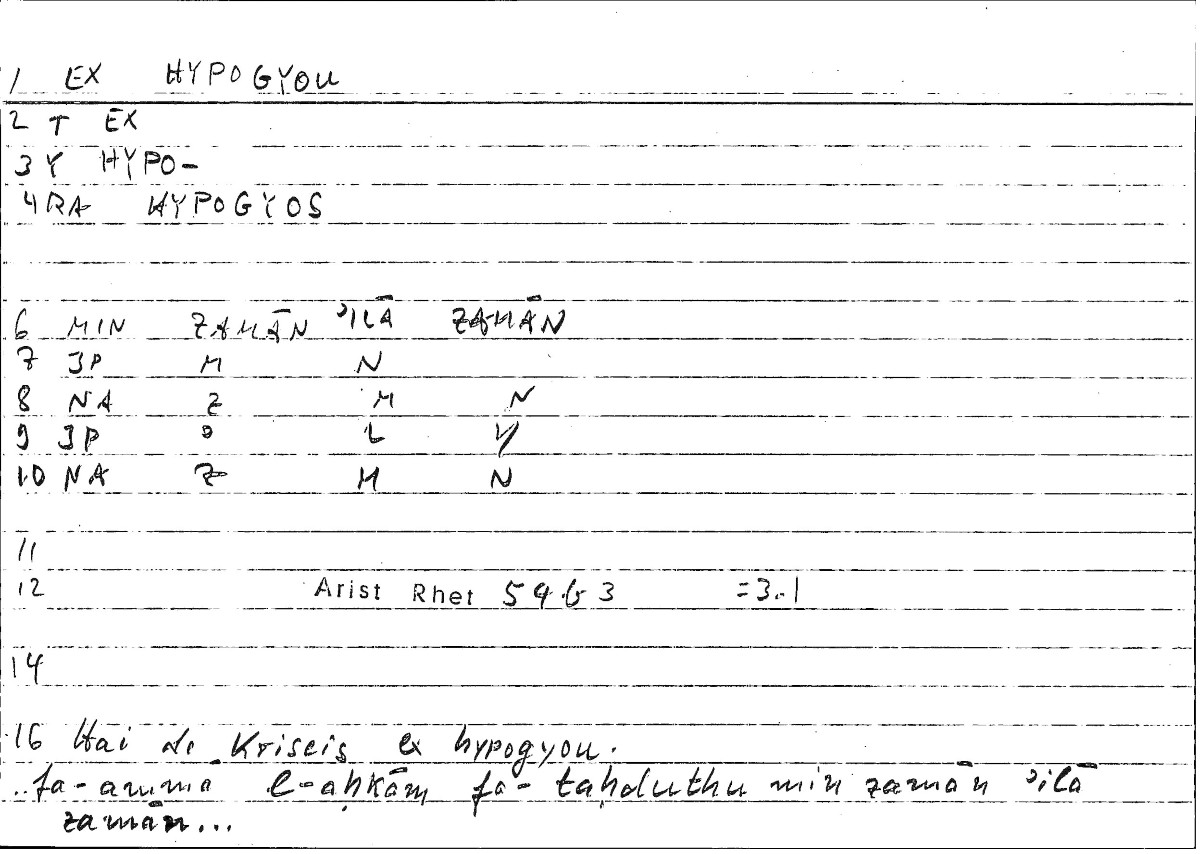 1 EX HYPOGYOU
2 T EX
3 Y HYPO-
4 RA HYPOGYOS
6 MIN ZAMĀN ʾILĀ ZAMĀN
7 JP M N
8 NA Z M N
9 JP ʾ L Y
10 NA Z M N
11
12 Arist Rhet 54b3 =3.1
14
16 Hai de Kriseis ex hypogyou.
..fa-ammā l-aḥkām fa-taḥduthu min zamān ʾilā
zamān...